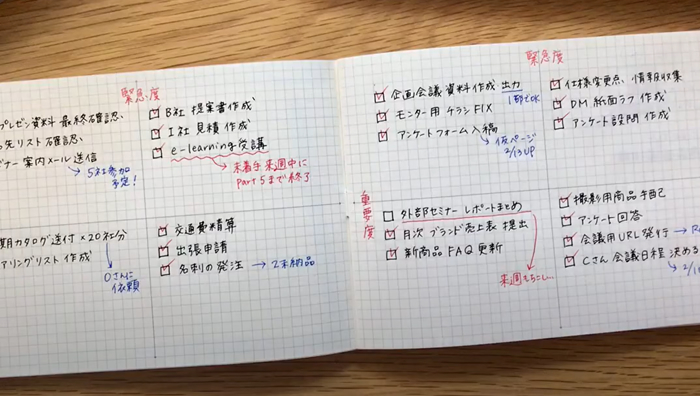 緊急度
プレゼン資料 最終確認、
先リスト確認、
ナー案内メール送信
→5社参加
予定!
☑ B社 提案書作成
☑ I社 見積 作成
☑ e-learning受講
→ 未着手 来週中に
Part 5まで終了
期カタログ送付×20社分
アリングリスト 作成
Oさんに
依頼
☑ 交通費精算
☑ 出張申請
☑ 名刺の発注 → 2末納品
緊急度
重要度
☑ 企画会議 資料作成 出力
1部でOK
☑ モニター用 チラシFIX
☑ アンケートフォーム入稿
→仮ページ
2/13 UP
☑ 仕様変更点、情報収集
☑ DM 紙面ラフ 作成
☑ アンケート設問 作成
☐ 外部セミナー レポートまとめ
☑ 月次 ブランド売上表 提出
☑ 新商品 FAQ 更新
来週もちこし…
☑ 撮影用商品手配
☑ アンケート回答
☑ 会議用URL発行 →
☑ Cさん 会議日程 決める